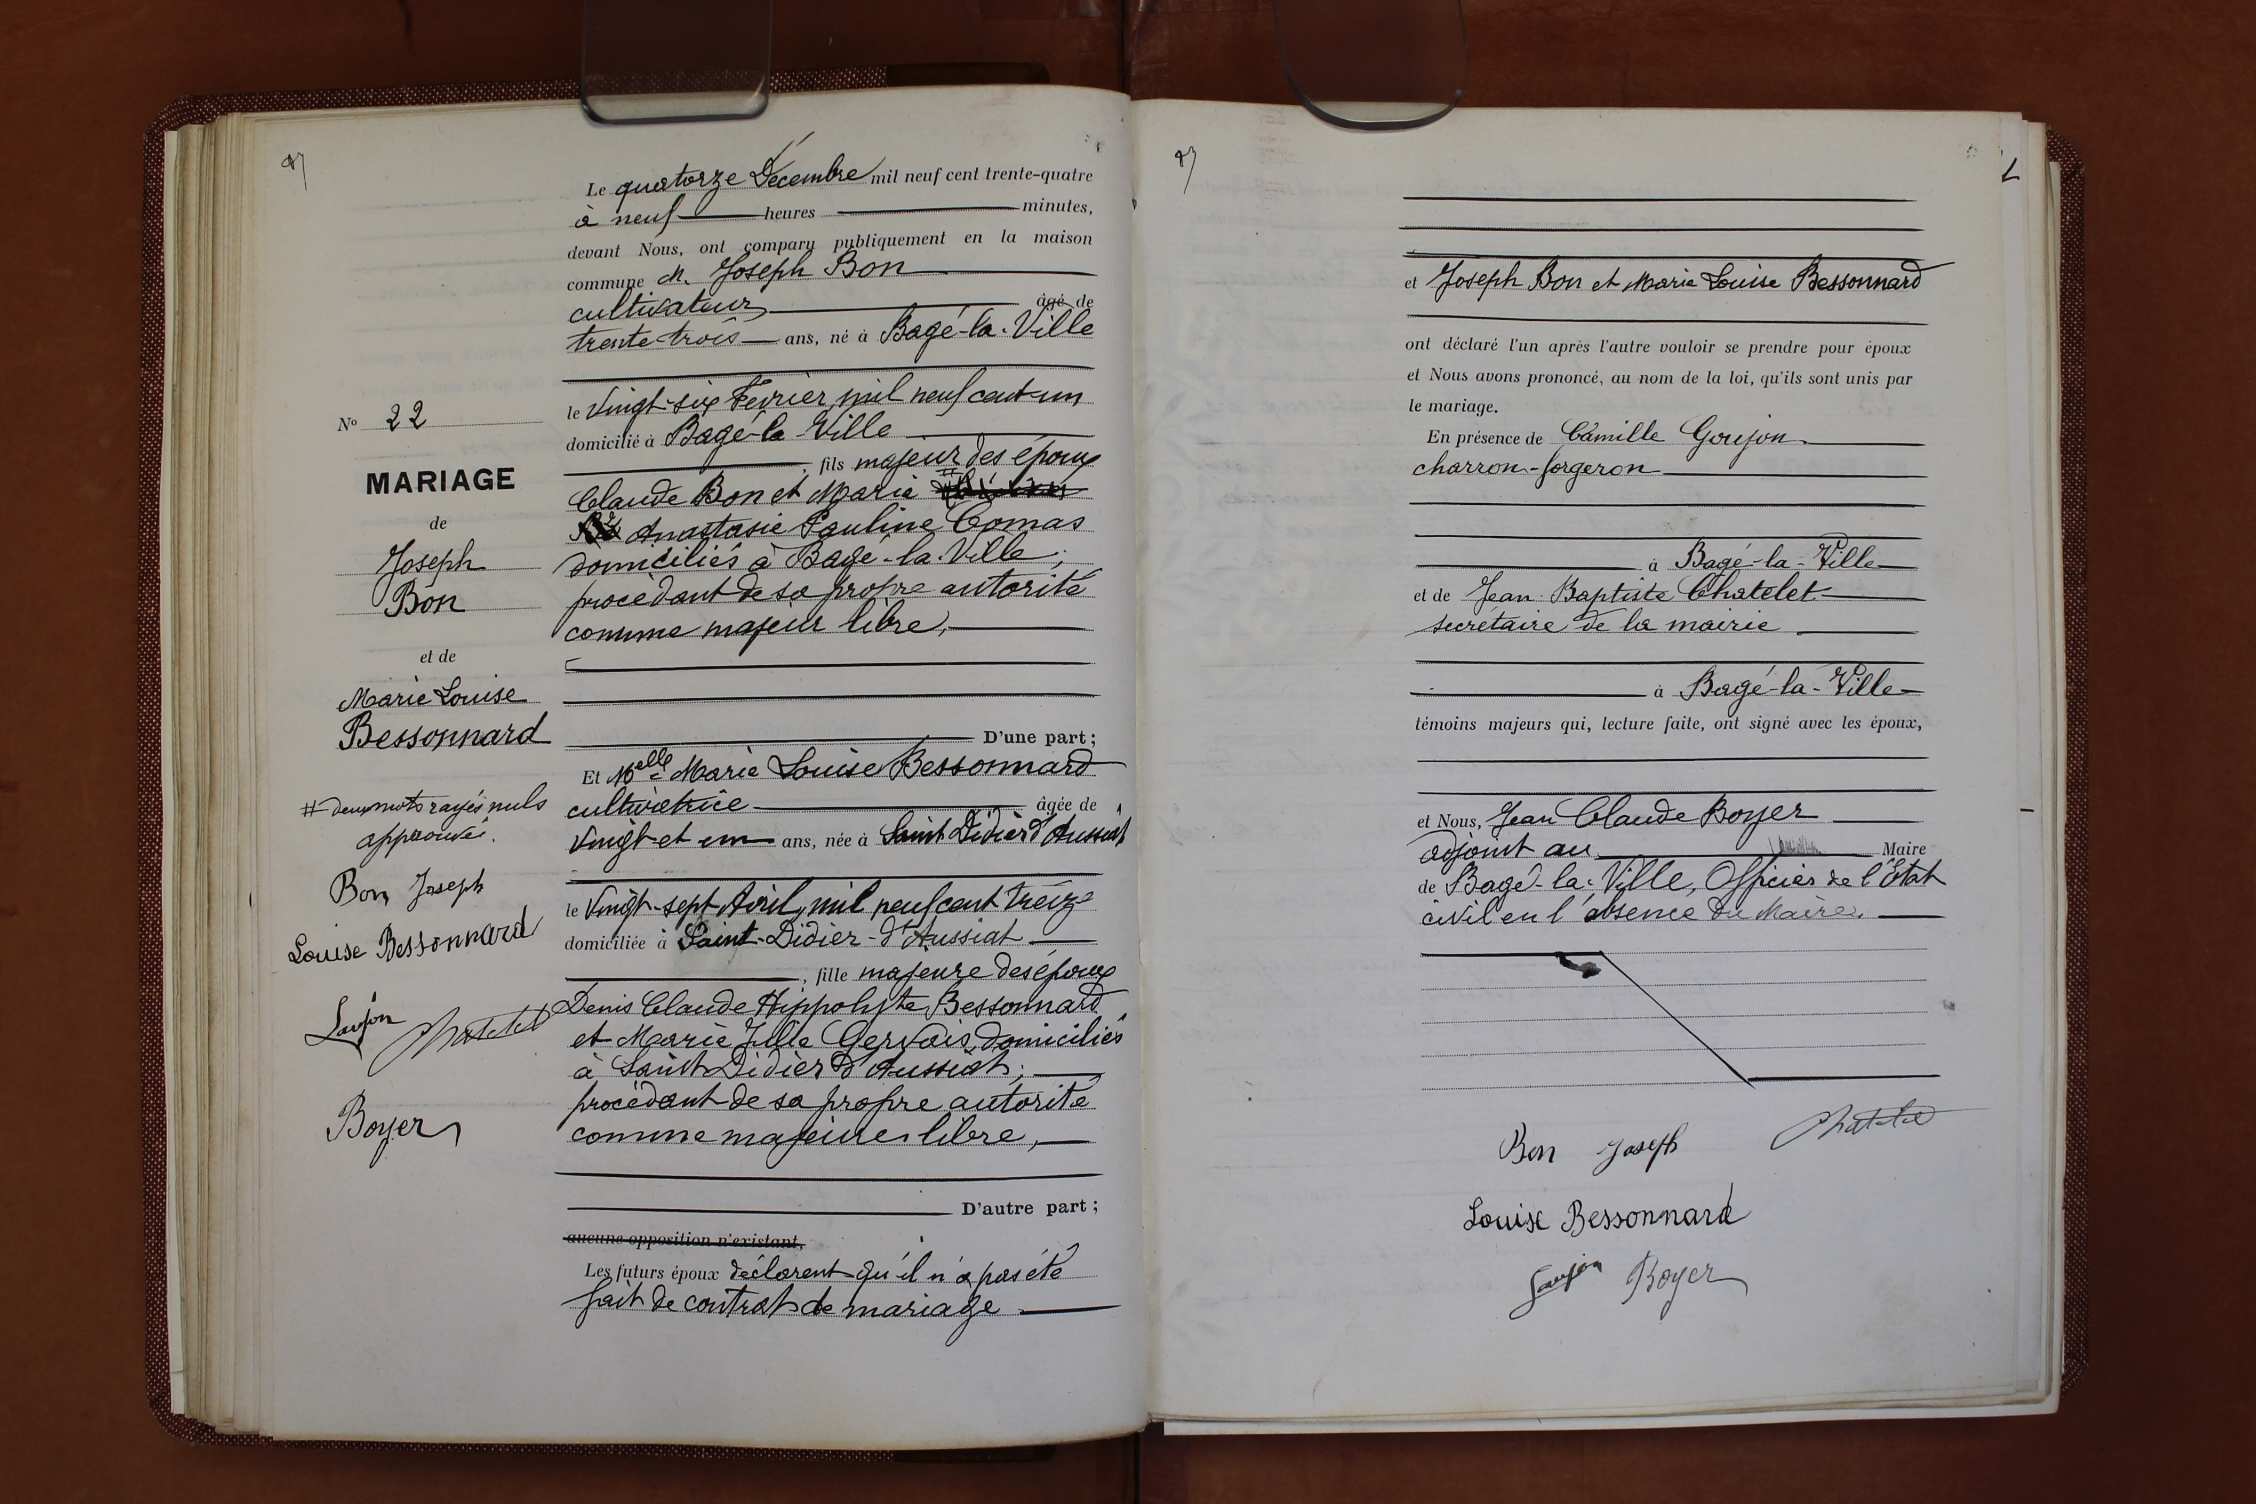 Le quatorze Décembre mil neuf cent trente-quatre
à neuf heures minutes,
devant Nous, ont comparu publiquement en la maison
commune M. Joseph Bon
cultivateur âgé de
trente trois ans, né à Bagé-la-Ville
le vingt-six Février mil neuf cent un
domicilié à Bagé-la-Ville
, fils majeur des époux
Claude Bon et Marie #
Anastasie Pauline Comas
domiciliés à Bagé-la-Ville;
procédant de sa propre autorité
comme majeur libre,
D'une part;
Et Melle Marie Louise Bessonnard
cultivatrice âgée de
vingt et un ans, née à Saint Didier d'Aussiat
le vingt-sept Avril mil neuf cent treize
domiciliée à Saint-Didier-d'Aussiat
, fille majeure des époux
Denis Claude Hippolyte Bessonnard
et Marie Julie Gervais, domiciliés
à Saint Didier d'Aussiat;
procédant de sa propre autorité
comme majeure libre,
D'autre part;
aucune opposition n'existant,
Les futurs époux déclarent qu'il n'a pas été
fait de contrat de mariage
No 22
MARIAGE
de
Joseph
Bon
et de
Marie Louise
Bessonnard
# deux mots rayés nuls
approuvé.
Bon Joseph
Louise Bessonnard
Goujon Chatelet
Boyer
et Joseph Bon et Marie Louise Bessonnard
ont déclaré l'un après l'autre vouloir se prendre pour époux
et Nous avons prononcé, au nom de la loi, qu'ils sont unis par
le mariage.
En présence de Camille Goujon
charron-forgeron
à Bagé-la-Ville
et de Jean Baptiste Chatelet
secrétaire de la mairie
à Bagé-la-Ville
témoins majeurs qui, lecture faite, ont signé avec les époux,
et Nous, Jean Claude Boyer
adjoint au Maire
de Bagé-la-Ville, Officier de l'Etat
civil en l'absence du Maire.
Bon Joseph Chatelet
Louise Bessonnard
Goujon Boyer